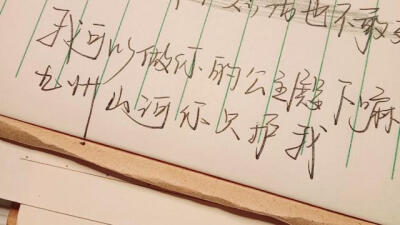 也不敢
我可以做你的公主殿下嘛
九州山河你只护我